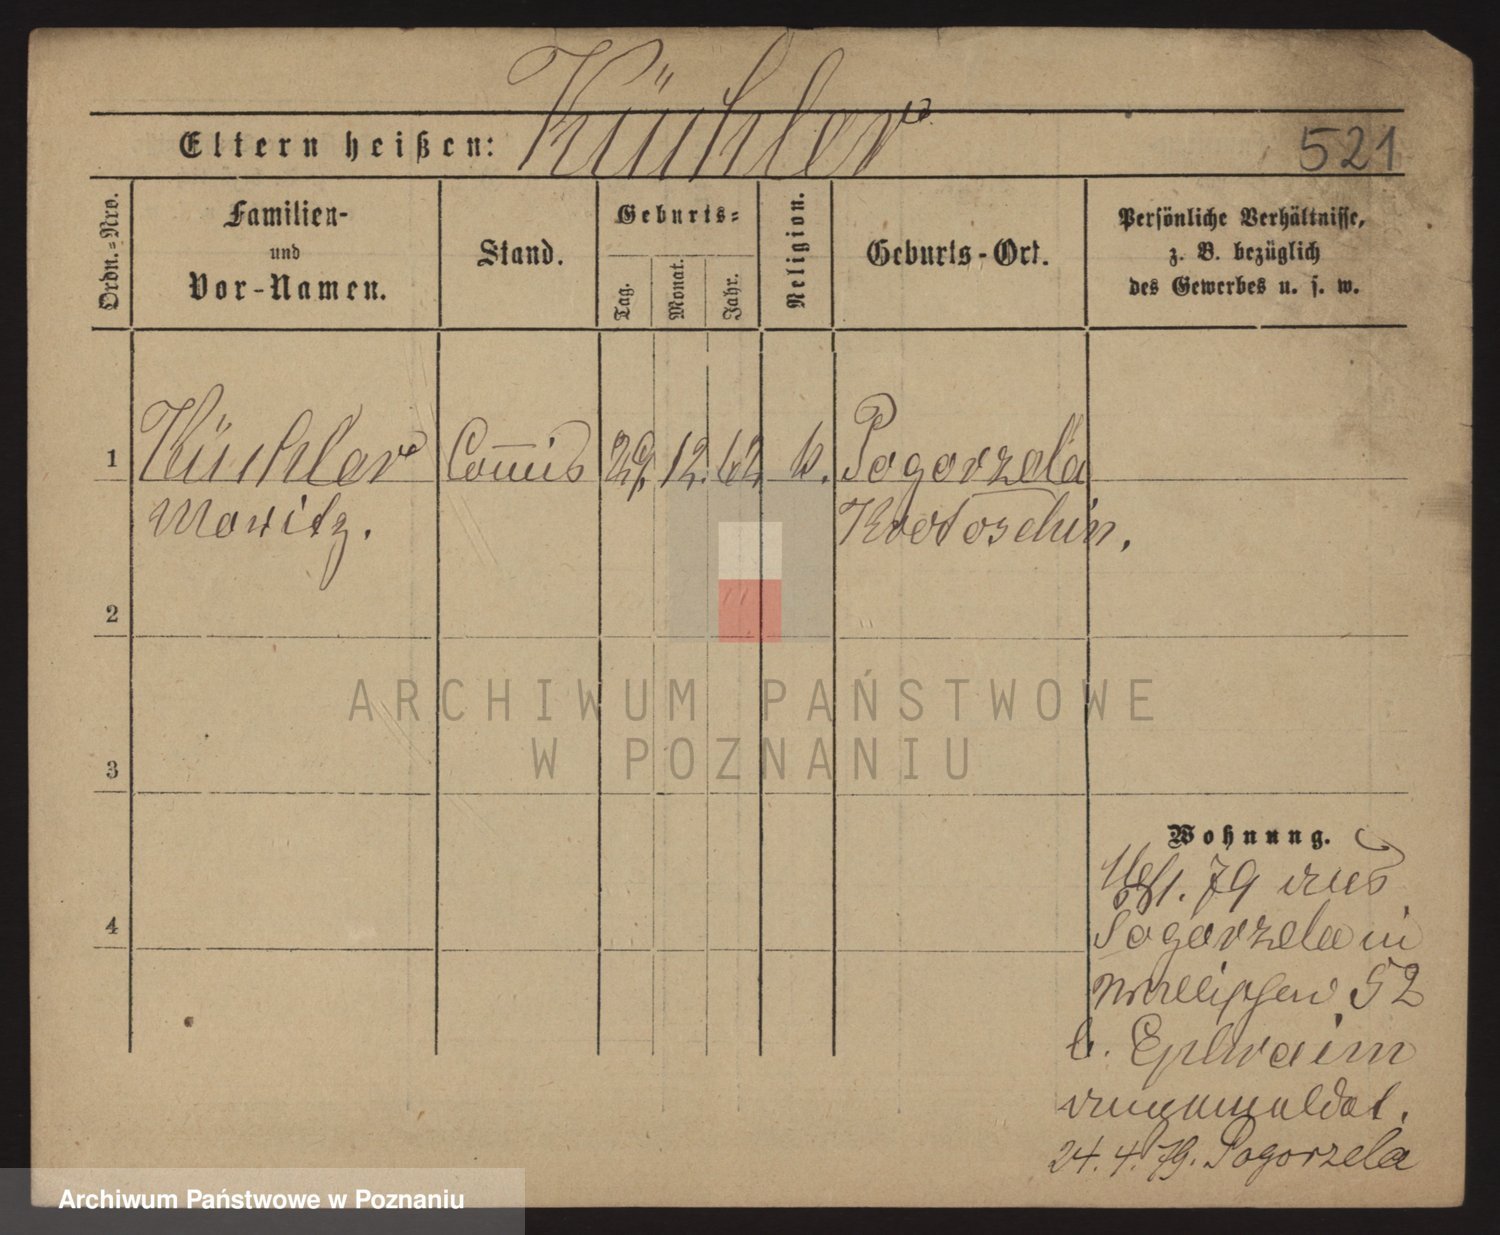 Eltern heißen: Küchler
521
Ordn.=Nro.
Familien-
und
Vor-Namen.
Stand.
Geburts=
Tag.
Monat.
Jahr.
Religion.
Geburts-Ort.
Persönliche Verhältnisse,
z. B. bezüglich
des Gewerbes u. s. w.
1 Küchler Commis 29. 12. 62. Pogorzela
Moritz. Krotoschin.
2
3
4
Wohnung.
79 aus
Pogorzela in
52
b. Ephraim
angemeldet.
24. 4. 79. Pogorzela
ARCHIWUM PAŃSTWOWE
W POZNANIU
Archiwum Państwowe w Poznaniu